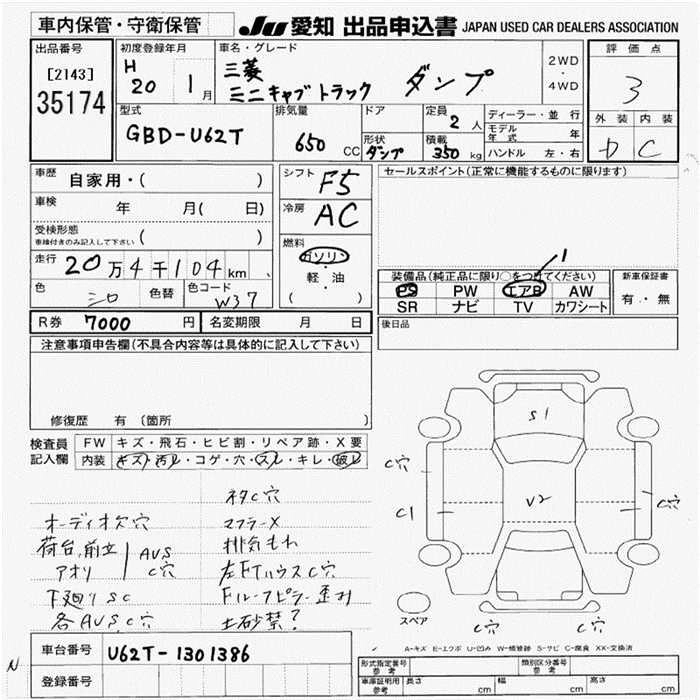 車内保管・守衛保管
JU 愛知 出品申込書 JAPAN USED CAR DEALERS ASSOCIATION
出品番号
[2143]
35174
初度登録年月
H 20 1月
車名・グレード
三菱
ミニキャブトラック ダンプ
2WD
・
4WD
評価点
3
外装 内装
D C
型式
GBD-U62T
排気量
650 CC
ドア
形状
ダンプ
定員
2人
積載
350 kg
ディーラー・並行
モデル年式 年
ハンドル 左・右
車歴
自家用・( )
車検
年 月( 日)
受検形態
車検付きのみ記入して下さい ( )
走行 20万4千104km
色 シロ 色替 色コード W37
シフト F5
冷房 AC
燃料
ガソリン
・
軽・油
( )
セールスポイント(正常に機能するものに限ります)
装備品(純正品に限り○をつけてください)
PS PW エアB AW
SR ナビ TV カワシート
新車保証書
有・無
R券 7000円 名変期限 月 日
後日品
注意事項申告欄(不具合内容等は具体的に記入して下さい)
修復歴 有 (箇所 )
検査員
記入欄
FW キズ・飛石・ヒビ割・リペア跡・X要
内装 キズ・汚レ・コゲ・穴・スレ・キレ・破レ
ネタC穴
オーディオ欠穴 マフラーX
荷台、前立 AVS 排気もれ
アオリ C穴 左FTハウスC穴
下廻りSC Fルーフピラー歪み
各AVSC穴 土砂禁?
S1
C穴
C1
V2
C穴
スペア
C穴 C穴
A-キズ E-エクボ U-凹み W-補修跡 S-サビ C-腐食 XX-交換済
N
車台番号 U62T-1301386
登録番号
形式指定番号
参考
類別区分番号
参考
車庫証明用
参考
長さ cm 幅 cm 高さ cm